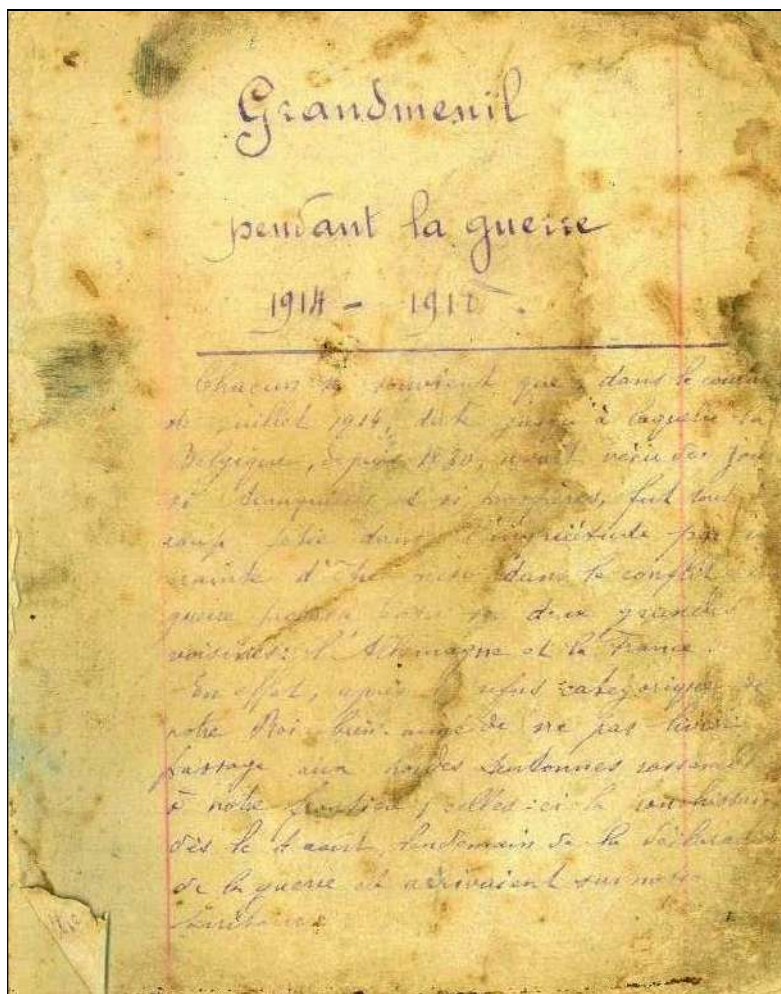 Grandmenil
pendant la guerre
1914 - 1918.
Chacun se souvient que, dans le
de juillet 1914, date jusqu'à laquelle la
Belgique, depuis 1830, avait vécu des
si tranquilles et si prospères, fut tout
coup jetée dans l'inquiétude par
crainte d'être mise dans le conflit
guerre entre deux grandes
voisines: l'Allemagne et la France.
En effet, après le refus catégorique de
notre Roi bien-aimé de ne pas livrer
passage aux hordes teutonnes
à notre frontière, celles-ci la
dès le 4 août, lendemain de la
de la guerre et arrivaient sur notre
territoire